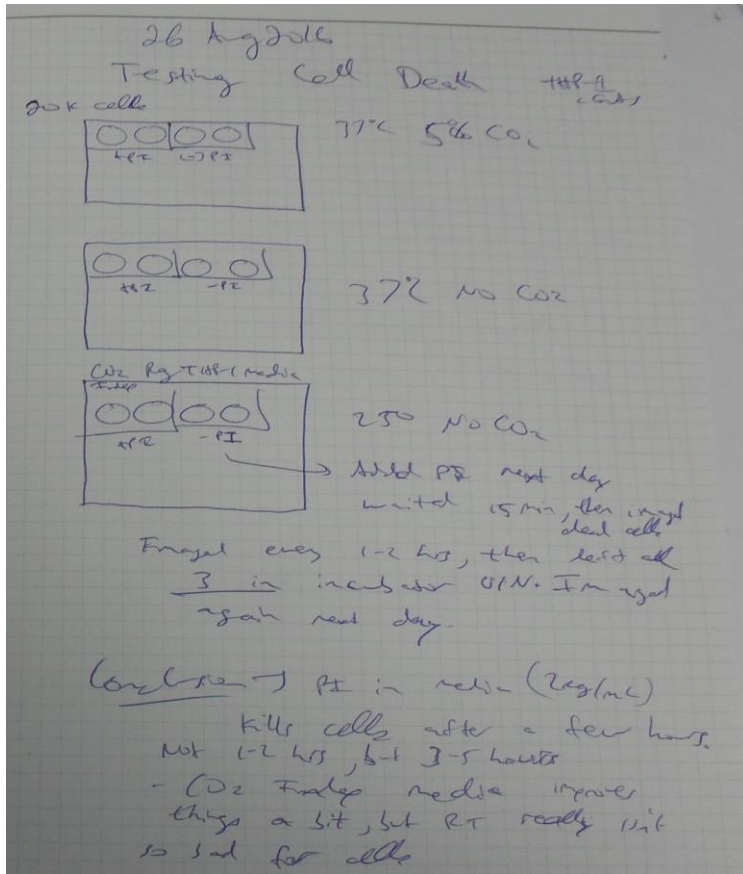 26 Aug 2016
Testing Cell Death THP-1 cells
20K cells
+PI (-)PI
37°C 5% CO2
+PI -PI
37°C NO CO2
CO2 Indep Reg THP-1 media
+PI -PI
25° NO CO2
Added PI next day
waited 15 min, then imaged
dead cells
Imaged every 1-2 hrs, then left all
3 in incubator O/N. Imaged
again next day.
Conclusion → PI in media (2ug/mL)
Kills cells after a few hours.
Not 1-2 hrs, but 3-5 hours
- CO2 Indep media improves
things a bit, but RT really isn't
so bad for cells